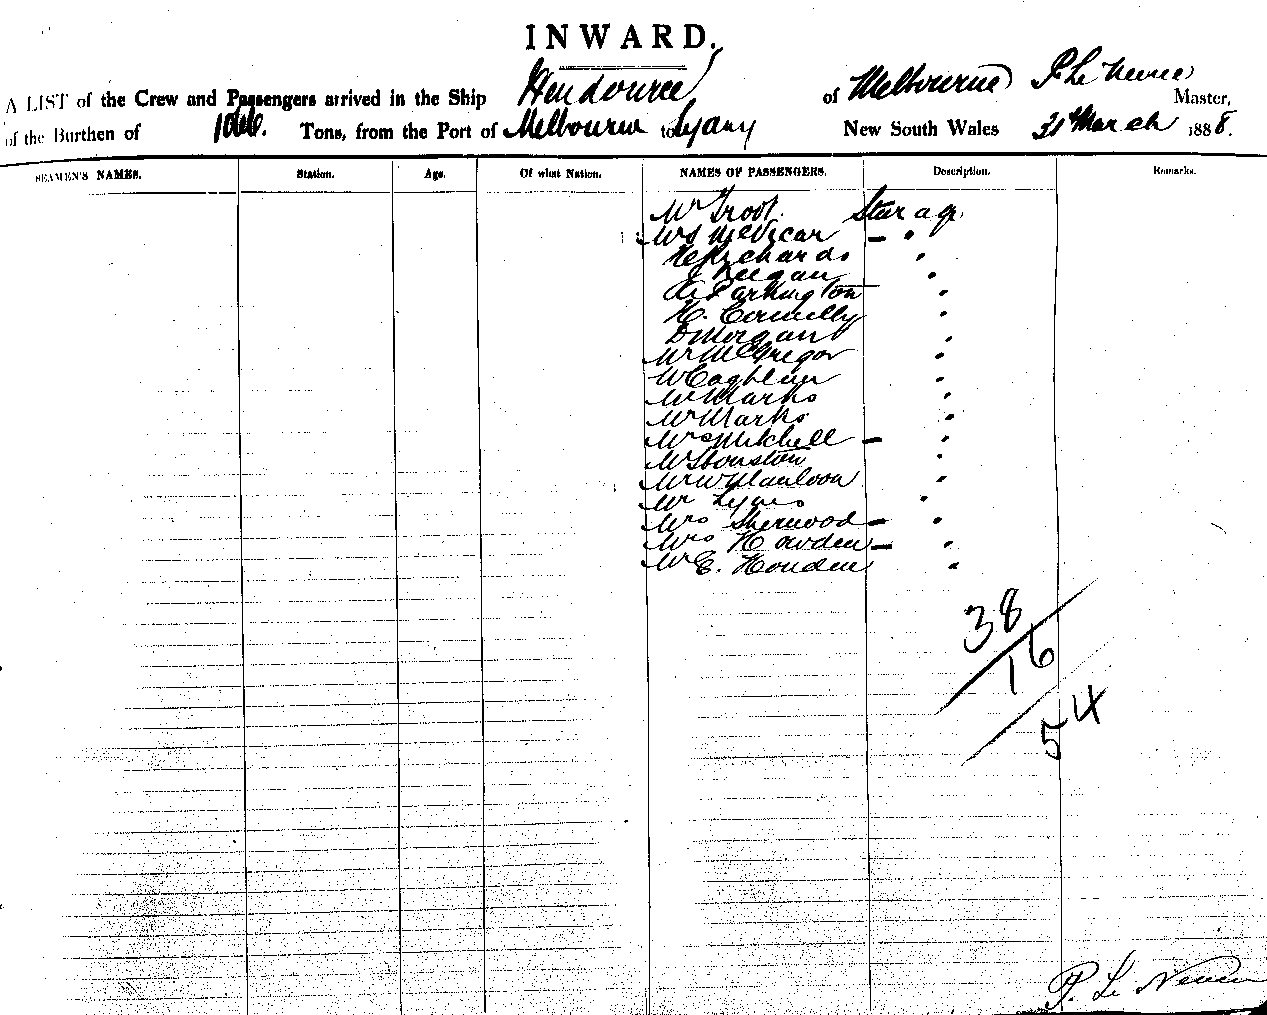 INWARD.
A LIST of the Crew and Passengers arrived in the Ship Wendouree of Melbourne P. Le Neveu Master,
of the Burthen of 1066. Tons, from the Port of Melbourne to Sydney New South Wales 31st March 1888.
SEAMEN'S NAMES. Station. Age. Of what Nation. NAMES OF PASSENGERS. Description. Remarks.
Mr Groot Steerage
Mrs McVicar - "
Richards "
J Keegan "
Parkington "
H. Connelly "
D Morgan "
Mr McGregor "
W Coghlan "
Mr Marks "
Mr Marks "
Mrs Mitchell - "
Mr Houston "
Mr W "
Mr Lyons "
Mrs Sherwood - "
Mrs Howden - "
Mr E. Howden "
38
16
54
P. Le Neveu